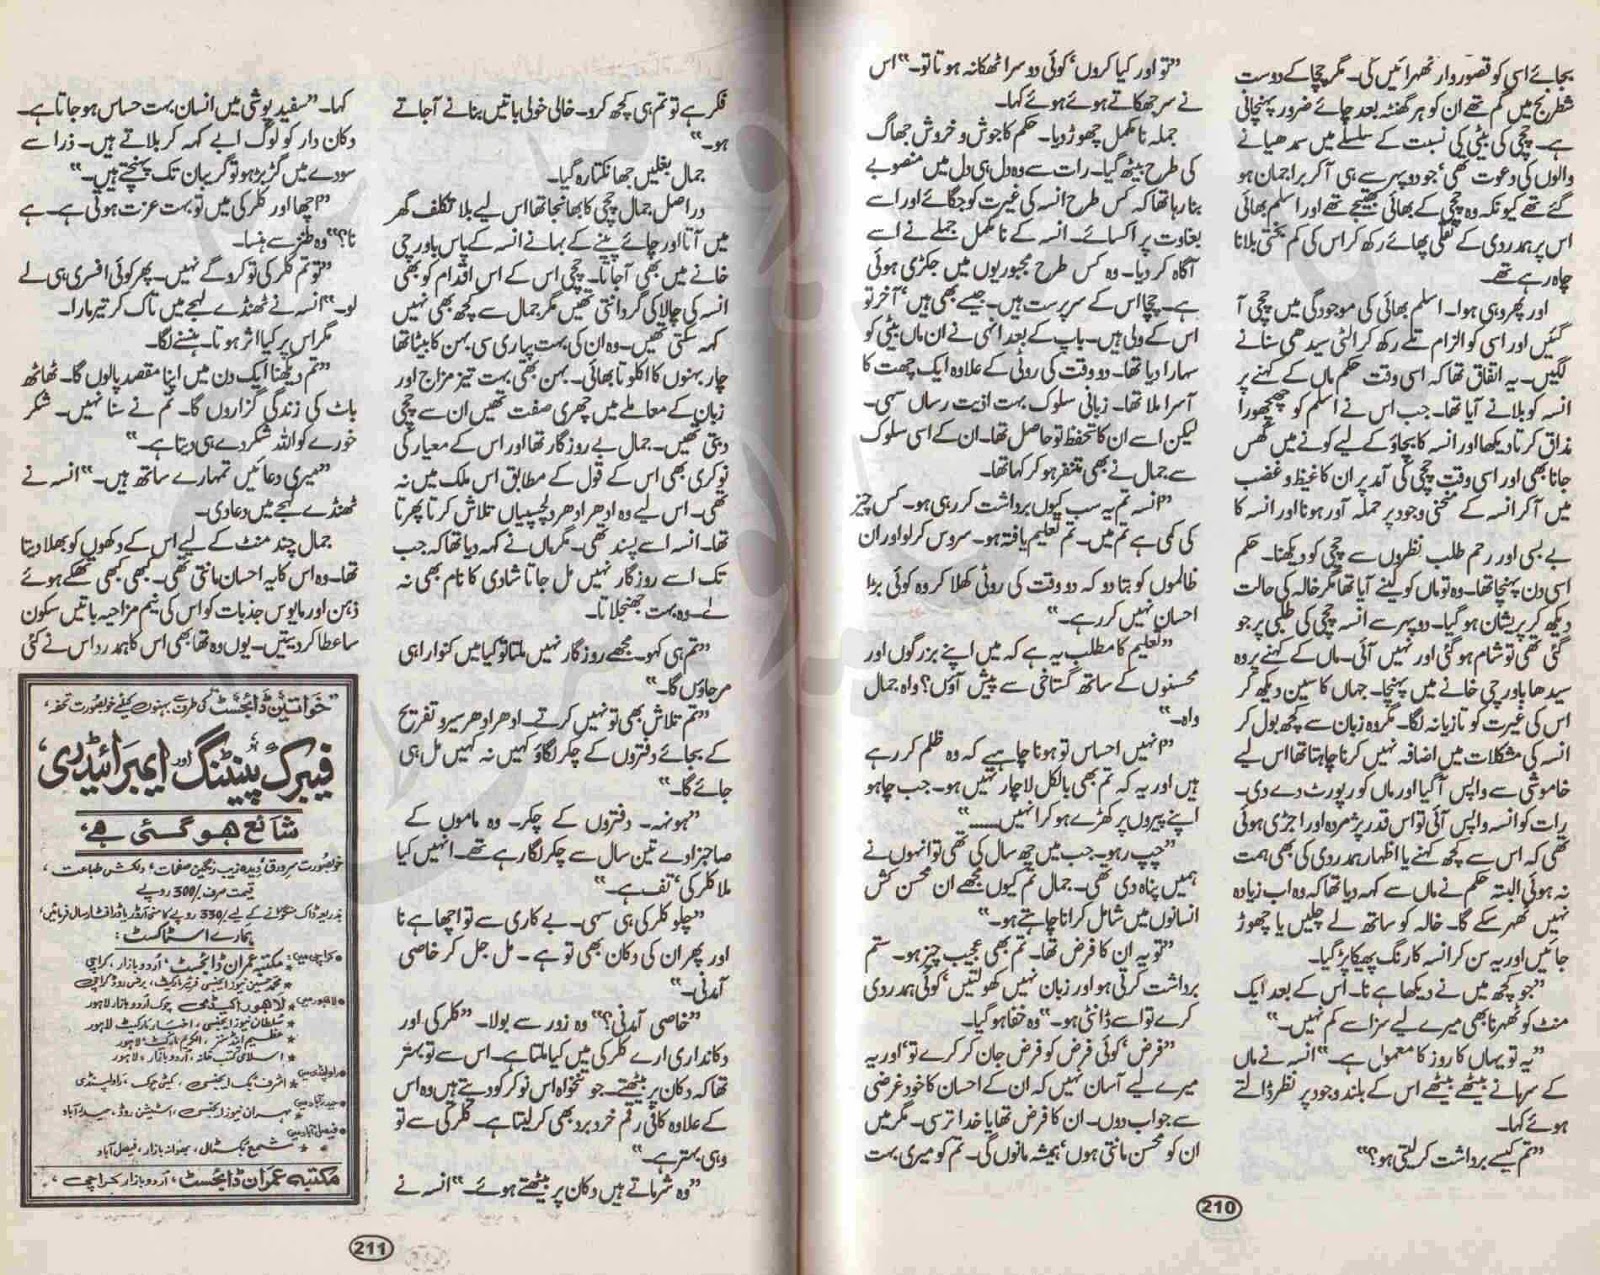 بجائے اسی کو قصور وار ٹھہرائیں گی۔ مگر چچا کے دوست
شطرنج میں گم تھے ان کو ہر گھنٹہ بعد چائے ضرور پہنچانی
ہے۔ چچی کی بیٹی کی نسبت کے سلسلے میں سمدھیانے
والوں کی دعوت تھی، جو دوپہر سے ہی آکر براجمان ہو
گئے تھے کیونکہ وہ چچی کے بھائی بھتیجے تھے اور اسلم بھائی
اس پر ہمدردی کے نقلی پھائے رکھ کر اس کی کم بختی بلانا
چاہ رہے تھے۔
اور پھر وہی ہوا۔ اسلم بھائی کی موجودگی میں چچی آ
گئیں اور اسی کو الزام تلے رکھ کر الٹی سیدھی سنانے
لگیں۔ یہ اتفاق تھا کہ اسی وقت حکم ماں کے کہنے پر
انسہ کو بلانے آیا تھا۔ جب اس نے اسلم کو چھچھورا
مذاق کرتا دیکھا اور انسہ کا بچاؤ کے لیے کونے میں گھس
جانا بھی اور اسی وقت چچی کی آمد پر ان کا غیظ و غضب
میں آکر انسہ کے منحنی وجود پر حملہ آور ہونا اور انسہ کا
بے بسی اور رحم طلب نظروں سے چچی کو دیکھنا۔ حکم
اسی دن پہنچا تھا۔ وہ تو ماں کو لینے آیا تھا مگر خالہ کی حالت
دیکھ کر پریشان ہو گیا۔ دوپہر سے انسہ چچی کی طلبی پر جو
گئی تھی تو شام ہو گئی اور نہیں آئی۔ ماں کے کہنے پر وہ
سیدھا باورچی خانے میں پہنچا۔ جہاں کا سین دیکھ کر
اس کی غیرت کو تازیانہ لگا۔ مگر وہ زبان سے کچھ بول کر
انسہ کی مشکلات میں اضافہ نہیں کرنا چاہتا تھا اس لیے
خاموشی سے واپس آگیا اور ماں کو رپورٹ دے دی۔
رات کو انسہ واپس آئی تو اس قدر پژمردہ اور اجڑی ہوئی
تھی کہ اس سے کچھ کہنے یا اظہار ہمدردی کی بھی ہمت
نہ ہوئی البتہ حکم نے ماں سے کہہ دیا تھا کہ وہ اب زیادہ
نہیں ٹھہر سکے گا۔ خالہ کو ساتھ لے چلیں یا چھوڑ
جائیں اور یہ سن کر انسہ کا رنگ پھیکا پڑ گیا۔
”جو کچھ میں نے دیکھا ہے نا۔ اس کے بعد ایک
منٹ کو ٹھہرنا بھی میرے لیے سزا سے کم نہیں۔“
”یہ تو یہاں کا روز کا معمول ہے۔“ انسہ نے ماں
کے سرہانے بیٹھے بیٹھے اس کے بلند وجود پر نظر ڈالتے
ہوئے کہا۔
”تم کیسے برداشت کر لیتی ہو؟“
”تو اور کیا کروں، کوئی دوسرا ٹھکانہ ہوتا تو۔“ اس
نے سر جھکاتے ہوئے کہا۔
جملہ نامکمل چھوڑ دیا۔ حکم کا جوش و خروش جھاگ
کی طرح بیٹھ گیا۔ رات سے وہ دل ہی دل میں منصوبے
بنا رہا تھا کہ کس طرح انسہ کی غیرت کو جگائے اور اسے
بغاوت پر اکسائے۔ انسہ کے نامکمل جملے نے اسے
آگاہ کر دیا۔ وہ کس طرح مجبوریوں میں جکڑی ہوئی
ہے۔ چچا اس کے سرپرست ہیں۔ جیسے بھی ہیں، آخر تو
اس کے ولی ہیں۔ باپ کے بعد انہی نے ان ماں بیٹی کو
سہارا دیا تھا۔ دو وقت کی روٹی کے علاوہ ایک چھت کا
آسرا ملا تھا۔ زبانی سلوک بہت اذیت رساں سہی۔
لیکن اسے ان کا تحفظ تو حاصل تھا۔ ان کے اسی سلوک
سے جمال نے بھی متنفر ہو کر کہا تھا۔
”انسہ تم یہ سب کیوں برداشت کر رہی ہو۔ کس چیز
کی کمی ہے تم میں۔ تم تعلیم یافتہ ہو۔ سروس کر لو اور ان
ظالموں کو بتا دو کہ دو وقت کی روٹی کھلا کر وہ کوئی بڑا
احسان نہیں کر رہے۔“
”تعلیم کا مطلب یہ ہے کہ میں اپنے بزرگوں اور
محسنوں کے ساتھ گستاخی سے پیش آؤں؟ واہ جمال
واہ۔“
”انہیں احساس تو ہونا چاہیے کہ وہ ظلم کر رہے
ہیں اور یہ کہ تم بھی بالکل لاچار نہیں ہو۔ جب چاہو
اپنے پیروں پر کھڑے ہو کر انہیں......“
”چپ رہو۔ جب میں چھ سال کی تھی تو انہوں نے
ہمیں پناہ دی تھی۔ جمال تم کیوں مجھے ان محسن کش
انسانوں میں شامل کرانا چاہتے ہو۔“
”تو یہ ان کا فرض تھا۔ تم بھی عجیب چیز ہو۔ ستم
برداشت کرتی ہو اور زبان نہیں کھولتیں، کوئی ہمدردی
کرے تو اسے ڈانٹتی ہو۔“ وہ خفا ہو گیا۔
”فرض، کوئی فرض کو فرض جان کر کرے تو، اور یہ
میرے لیے آسان نہیں کہ ان کے احسان کا خود غرضی
سے جواب دوں۔ ان کا فرض تھا یا خدا ترسی۔ مگر میں
ان کو محسن مانتی ہوں، ہمیشہ مانوں گی۔ تم کو میری بہت
210
فکر ہے تو تم ہی کچھ کرو۔ خالی خولی باتیں بنانے آجاتے
ہو۔“
جمال بغلیں جھانکتا رہ گیا۔
دراصل جمال چچی کا بھانجا تھا اس لیے بلا تکلف گھر
میں آتا اور چائے پینے کے بہانے انسہ کے پاس باورچی
خانے میں بھی آجاتا۔ چچی اس کے اس اقدام کو بھی
انسہ کی چالاکی گردانتی تھیں مگر جمال سے کچھ بھی نہیں
کہہ سکتی تھیں۔ وہ ان کی بہت پیاری سی بہن کا بیٹا تھا
چار بہنوں کا اکلوتا بھائی۔ بہن بھی بہت تیز مزاج اور
زبان کے معاملے میں چھری صفت تھیں ان سے چچی
دبتی تھیں۔ جمال بے روزگار تھا اور اس کے معیار کی
نوکری بھی اس کے قول کے مطابق اس ملک میں نہ
تھی۔ اس لیے وہ ادھر ادھر دلچسپیاں تلاش کرتا پھرتا
تھا۔ انسہ اسے پسند تھی۔ مگر ماں نے کہہ دیا تھا کہ جب
تک اسے روزگار نہیں مل جاتا شادی کا نام بھی نہ
لے۔ وہ بہت جھنجلاتا۔
”تم ہی کہو۔ مجھے روزگار نہیں ملتا تو کیا میں کنوارا ہی
مر جاؤں گا۔“
”تم تلاش بھی تو نہیں کرتے۔ ادھر ادھر سیر و تفریح
کے بجائے دفتروں کے چکر لگاؤ کہیں نہ کہیں مل ہی
جائے گا۔“
”ہونہہ۔ دفتروں کے چکر۔ وہ ماموں کے
صاحبزادے تین سال سے چکر لگا رہے تھے۔ انہیں کیا
ملا کلرکی، تف ہے۔“
”چلو کلرکی ہی سہی۔ بے کاری سے تو اچھا ہے نا
اور پھر ان کی دکان بھی تو ہے۔ مل جل کر خاصی
آمدنی۔“
”خاصی آمدنی؟“ وہ زور سے بولا۔ ”کلرکی اور
دکانداری ارے کلرکی میں کیا ملتا ہے۔ اس سے تو بہتر
تھا کہ دکان پر بیٹھتے۔ جو تنخواہ اس نوکر کو دیتے ہیں وہ اس
کے علاوہ کافی رقم خرد برد بھی کر لیتا ہے۔ کلرکی سے تو
وہی بہتر ہے۔“
”وہ شرماتے ہیں دکان پر بیٹھتے ہوئے۔“ انسہ نے
کہا۔ ”سفید پوشی میں انسان بہت حساس ہو جاتا ہے۔
دکان دار کو لوگ ابے کہہ کر بلاتے ہیں۔ ذرا سے
سودے میں گڑبڑ ہو تو گریبان تک پہنچتے ہیں۔“
”اچھا اور کلرکی میں تو بہت عزت ہوتی ہے۔ ہے
نا؟“ وہ طنز سے ہنسا۔
”تو تم کلرکی تو کرو گے نہیں۔ پھر کوئی افسری ہی لے
لو۔“ انسہ نے ٹھنڈے لہجے میں تاک کر تیر مارا۔
مگر اس پر کیا اثر ہوتا۔ ہنسنے لگا۔
”تم دیکھنا ایک دن میں اپنا مقصد پالوں گا۔ ٹھاٹھ
باٹ کی زندگی گزاروں گا۔ تم نے سنا نہیں۔ شکر
خورے کو اللہ شکر دے ہی دیتا ہے۔“
”میری دعائیں تمہارے ساتھ ہیں۔“ انسہ نے
ٹھنڈے لہجے میں دعا دی۔
جمال چند منٹ کے لیے اس کے دکھوں کو بھلا دیتا
تھا۔ وہ اس کا یہ احسان مانتی تھی۔ کبھی کبھی تھکے ہوئے
ذہن اور مایوس جذبات کو اس کی نیم مزاحیہ باتیں سکون
سا عطا کر دیتیں۔ یوں وہ تھا بھی اس کا ہمدرد اس نے کئی
”خواتین ڈائجسٹ“ کی طرف سے بہنوں کیلئے خوبصورت تحفہ،
فیبرک پینٹنگ اور ایمبرائیڈری،
شائع ہو گئی ہے،
خوبصورت سرورق، دیدہ زیب رنگین صفحات، دلکش طباعت،
قیمت صرف -/300 روپے
بذریعہ ڈاک منگوانے کے لیے -/330 روپے کا منی آرڈر یا ڈرافٹ ارسال فرمائیں،
ہمارے اسٹاکسٹ:
کراچی میں: ★ مکتبہ عمران ڈائجسٹ، اردو بازار، کراچی
لاہور میں: ★ لاہور اکیڈمی، چوک اردو بازار لاہور
★ سلطان نیوز ایجنسی، اخبار مارکیٹ لاہور
★ اسلامی کتب خانہ، اردو بازار، لاہور
راولپنڈی میں: ★ اشرف بک ایجنسی، کمیٹی چوک، راولپنڈی
حیدرآباد میں: ★ مہران نیوز ایجنسی، اسٹیشن روڈ، حیدرآباد
فیصل آباد میں: ★ شمع بک سٹال، بھوانہ بازار، فیصل آباد
مکتبہ عمران ڈائجسٹ، اردو بازار کراچی،
211